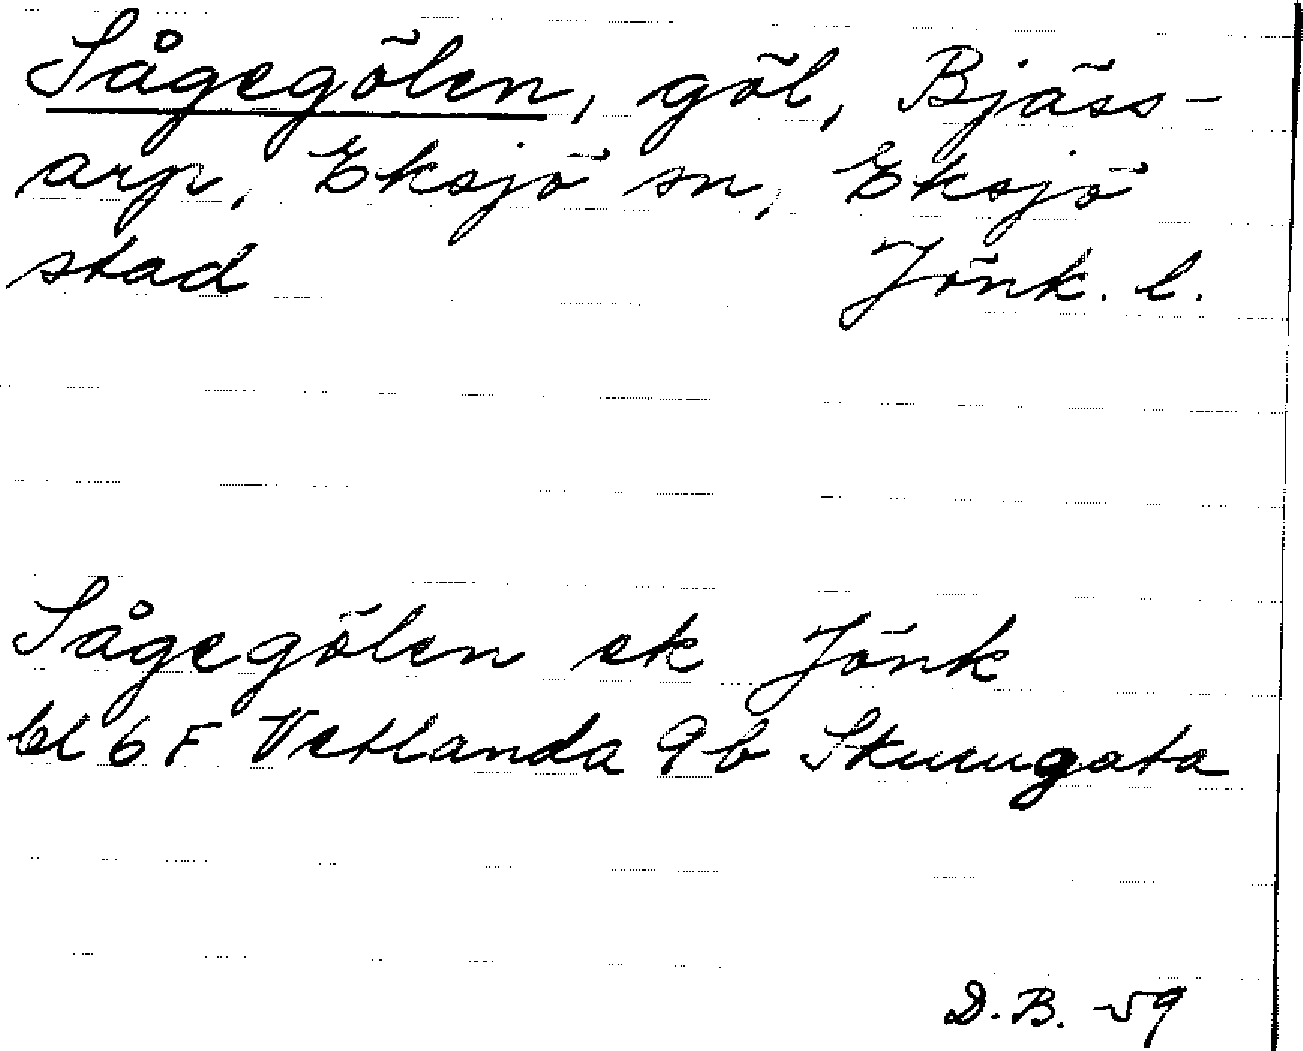 Sågegölen, göl, Bjäss-
arp, Eksjö sn, Eksjö
stad Jönk. l.
Sågegölen ek Jönk
bl 6 F Vetlanda 9b Skurugata
D.B. -59